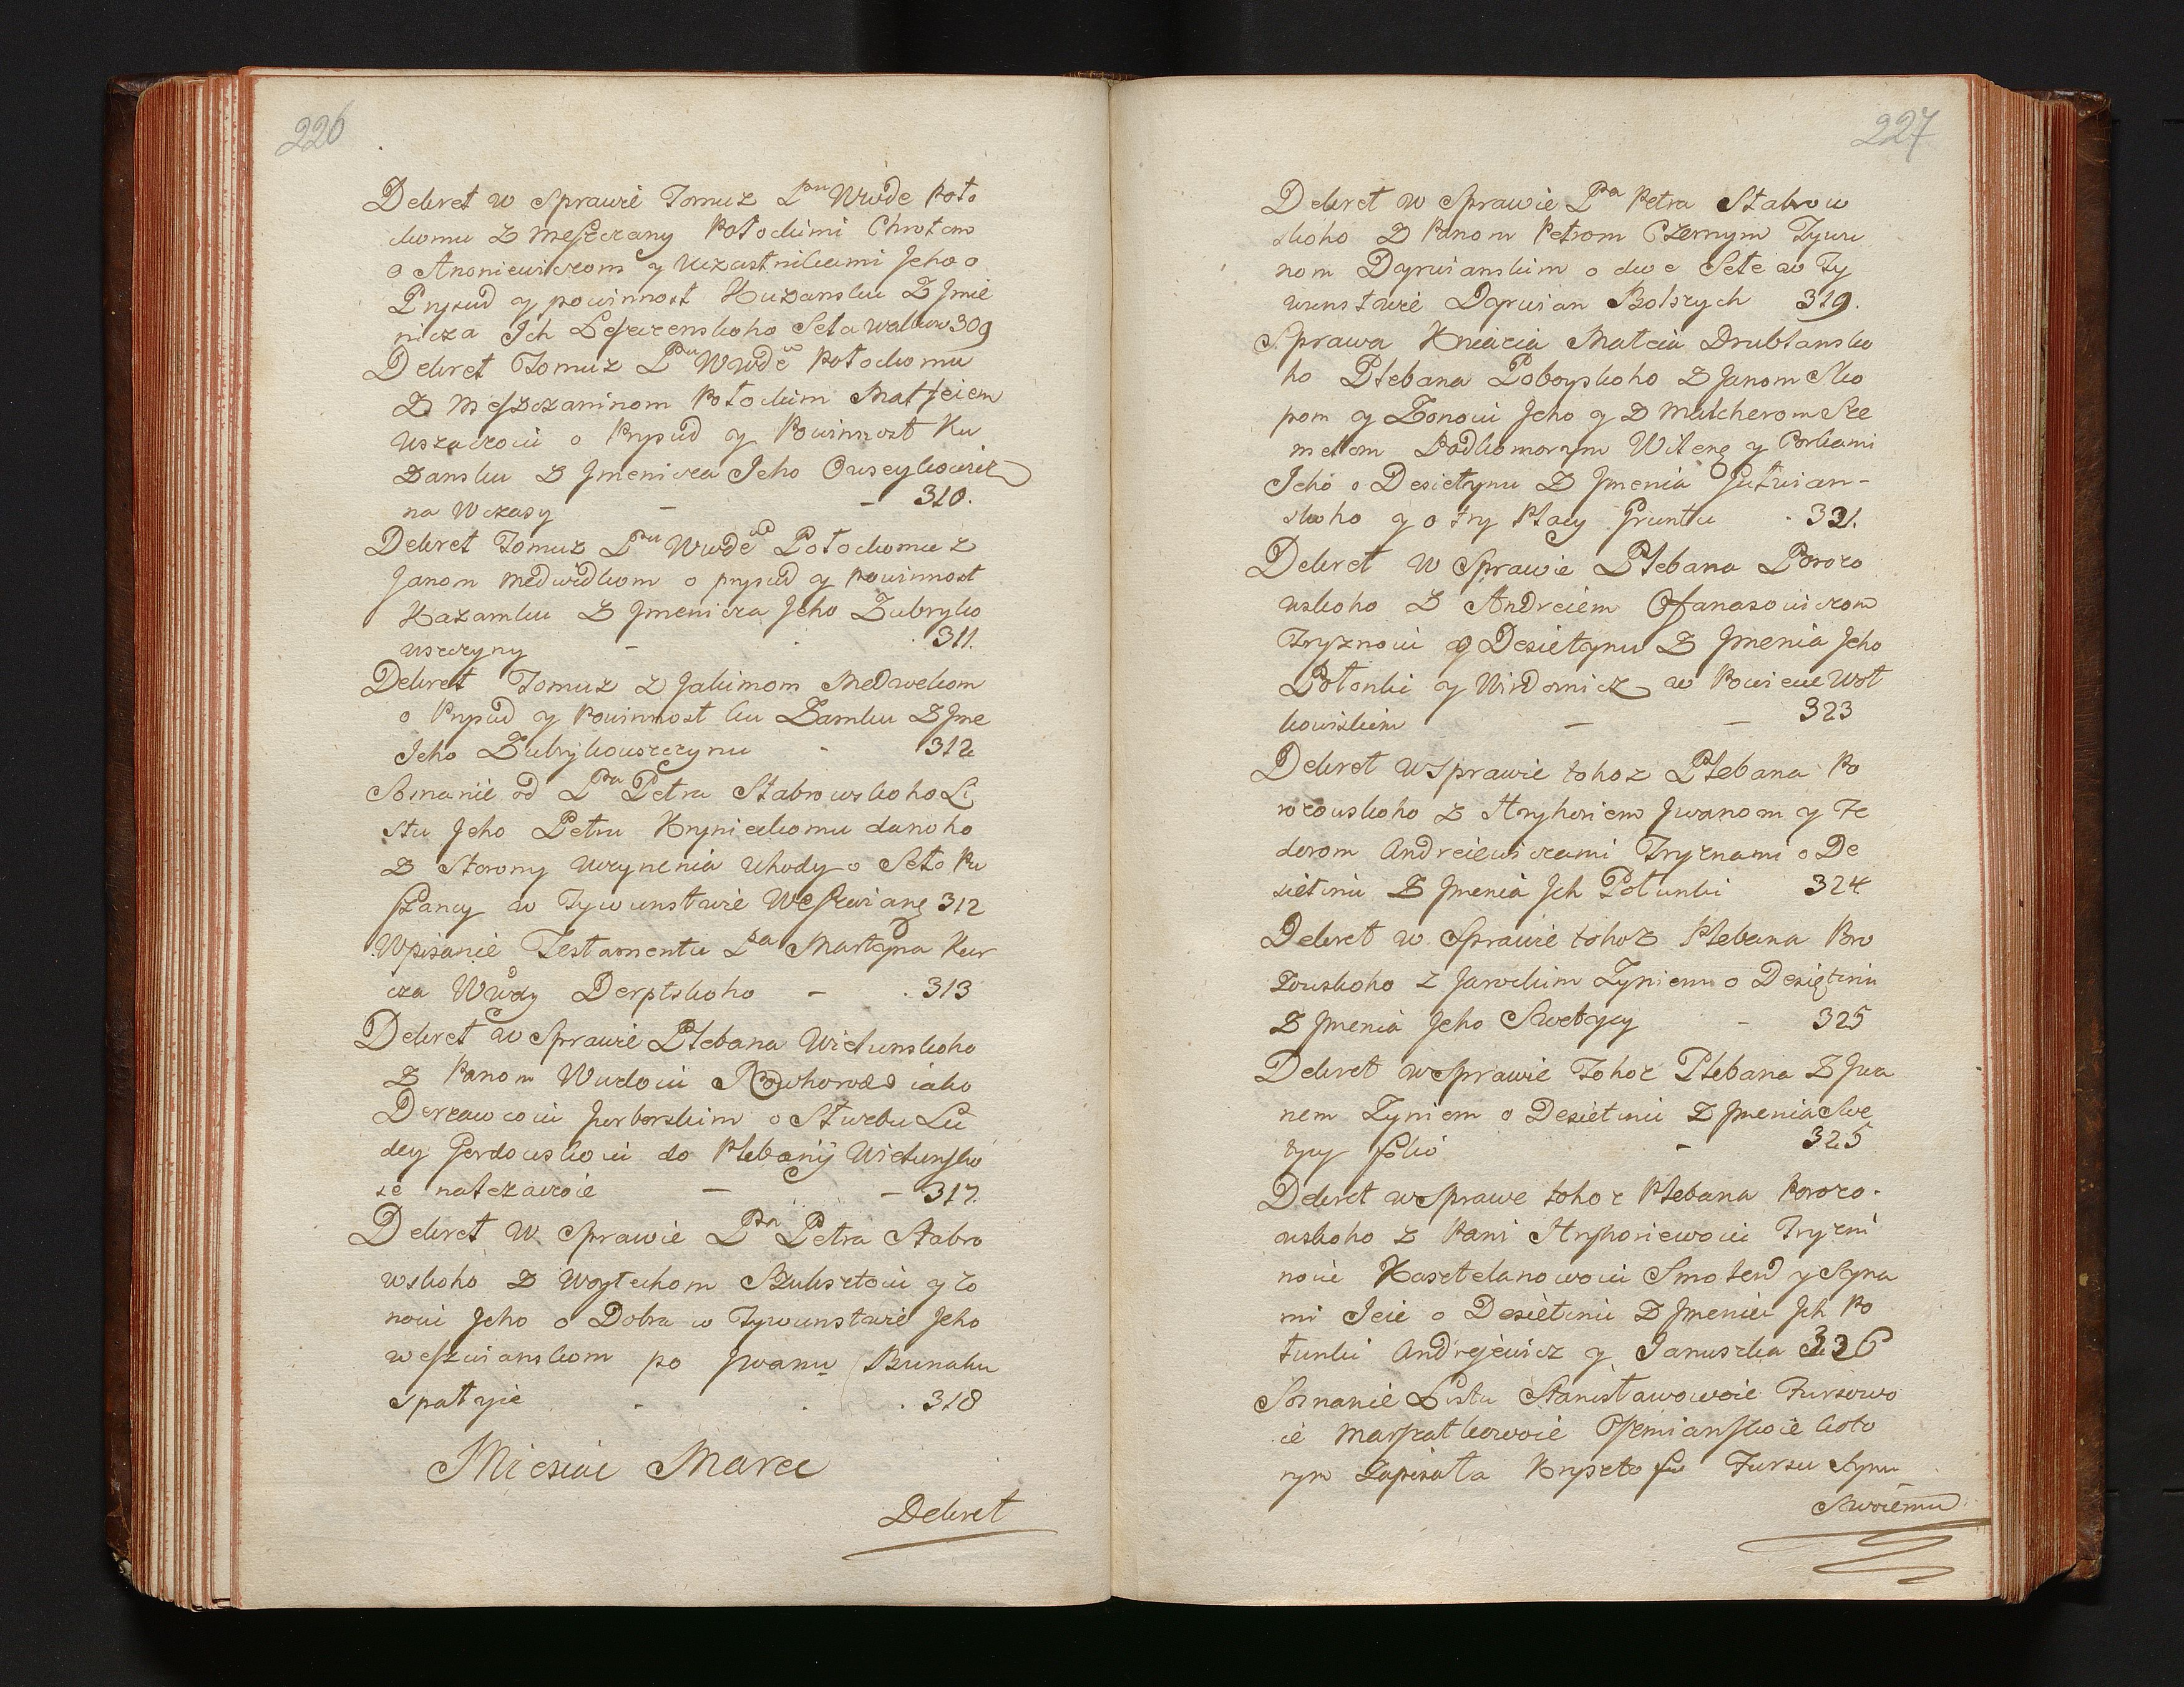 226
Dekret w Sprawie Tomuż Pnu Wwde Poło
ckomu Z Meszczany Połockimi Chrołom
o Anoniewiczom y Uczastnikami Jeho o
Prysud y powinnost Kuzamku Z Jmie
nicza Ich Leszczenskoho Seła Wałkow 309
Dekret Tomuż Pnu Wwde Połockomu
Z Meszczaninom Połockim Matfeiem
Uszaczoiu o Prysud y Powinnost Ku
Zamku Z Jmenicza Jeho Owseykowicz
na Wczasy - - 310.
Dekret Tomuż Pnu Wwde Połockomu Z
Janom Medwedkom o prysud y Powinnost
Kazamku Z Jmenicza Jeho Zubryko
wszczyny - . 311.
Dekret Tomuż z Jakimom Medwekom
o Prysud y Powinnost ku Zamku Z Jme
Jeho Zubrykowszczynu - 312
Soznanie od Pna Petra Stabrowskoho Li
stu Jeho Petru Krynickomu danoho
Z Storony Uczynenia Uhody o Seło Pu
szancy w Tywunstwie Weszwiang 312
Wpisanie Testamentu Pna Martyna Kur
cza Wwdy Derptskoho - . 313
Dekret w Sprawie Plebana Wielunskoho
Z Panom Wwdoiu Nowhorods iako
Derżawcoiu Jurborskim o Służbu Lu
dey Gordowskoiu do Plebanij Wielunsko
ie należaczoie - - 317.
Dekret w Sprawie Pna Petra Stabro
wskoho Z Woytechom Szuksztoiu y Żo
noiu Jeho o Dobra w Tywunstwie Jeho
weszwianskom po Jwanu Bunaku
spałyie . . . 318
Miesiac Marca
Dekret
227
Dekret w Sprawie Pna Petra Stabrow
skoho Z Panom Petrom Czernym Tywu
nom Dyrwianskim o dwe Sele w Ty
wunstwie Dyrwian Bolszych 319.
Sprawa Kniacia Małcia Drublansko
ho Plebana Poboyskoho Z Janom Sko
pom y Żonoiu Jeho y Z Melcherom Sze
metom Podkomorym Witeng y Porkami
Jeho o Desietynu Z Jmenia Jutwian-
skoho y o try Placy Gruntu . 321.
Dekret w Sprawie Plebana Porozo
wskoho Z Andreiem Ofanasowiczom
Tryznoiu o Desietynu Z Jmenia Jeho
Połonki y Wirdomicz w Powiecie Woł
kowiskim - - 323
Dekret w Sprawie tohoż Plebana Po
rozowskoho Z Hryhoriem Jwanom y Fe
dorom Andreiewiczami Tryznami o De
sietinu Z Jmenia Jch Połunki 324
Dekret w Sprawie tohoż Plebana Poro
zowskoho z Jarockim Łyniem o Desiętinu
Z Jmenia Jeho Swetycy - 325
Dekret w Sprawie tohoż Plebana Z Jwa
nem Łyniem o Desietinu Z Jmenia Swe
tycy folio - 325
Dekret w Sprawe tohoż Plebana Porozo-
wskoho Z Pani Hryhoriewoiu Tryzni
noiu Kasztelanowoiu Smolend y Syna
mi Jeie o Desietinu Z Jmeniu Jch Po
łunki Andrejewicz y Januszka 326
Soznanie Listu Stanisławowoie Fursowo
ie Marszałkowoie Oszmianskoie koto
rym Zapisała Krysztofu Fursu Synu
Swoiemu